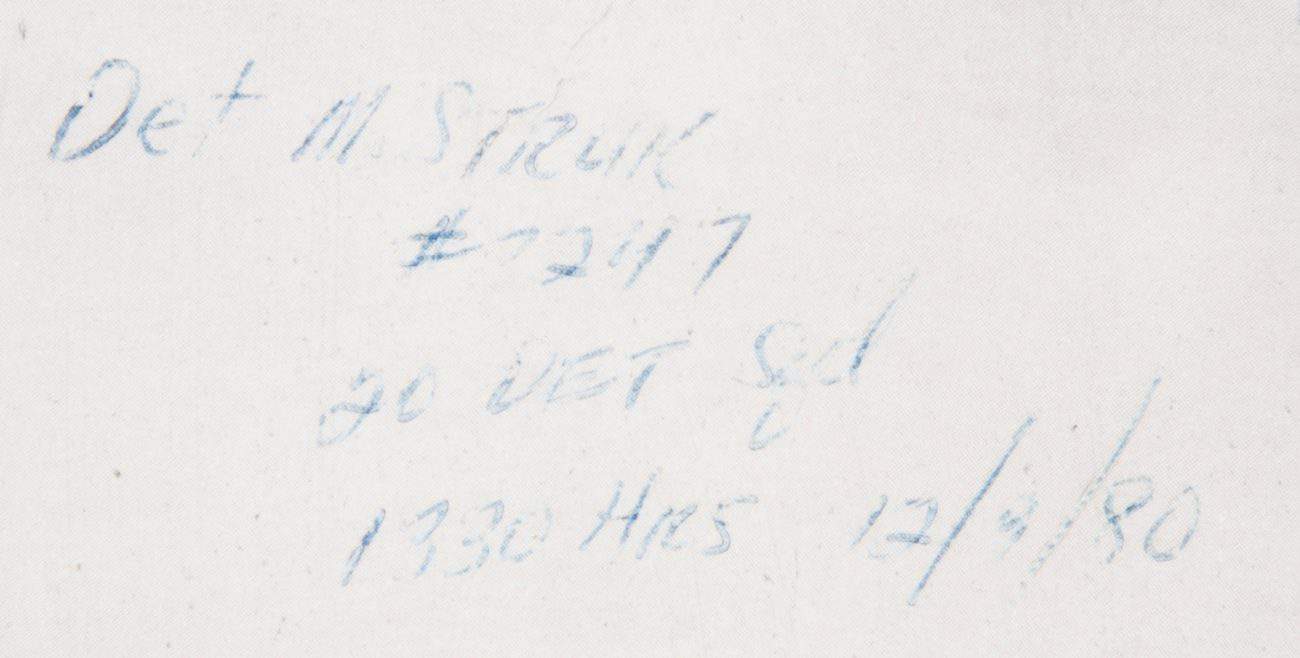 Det M. STRUK
#7247
20 DET Sqd
HRS 12/9/80